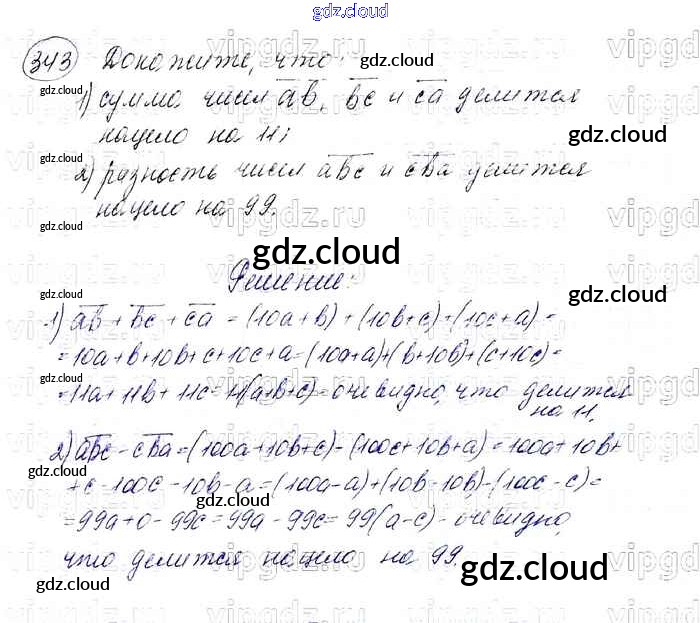 gdz.cloud
343 Докажите, что:
1) сумма чисел ab, bc и ca делится
нацело на 11;
2) разность чисел abc и cba делится
нацело на 99.
Решение:
1) ab + bc + ca = (10a + b) + (10b + c) + (10c + a) =
= 10a + b + 10b + c + 10c + a = (10a + a) + (b + 10b) + (c + 10c) =
= 11a + 11b + 11c = 11(a + b + c) - очевидно, что делится
на 11.
2) abc - cba = (100a + 10b + c) - (100c + 10b + a) = 100a + 10b +
+ c - 100c - 10b - a = (100a - a) + (10b - 10b) - (100c - c) =
= 99a + 0 - 99c = 99a - 99c = 99(a - c) - очевидно,
что делится нацело на 99.
gdz.cloud
gdz.cloud
gdz.cloud
gdz.cloud
gdz.cloud
gdz.cloud
gdz.cloud
gdz.cloud
gdz.cloud
gdz.cloud
gdz.cloud
gdz.cloud